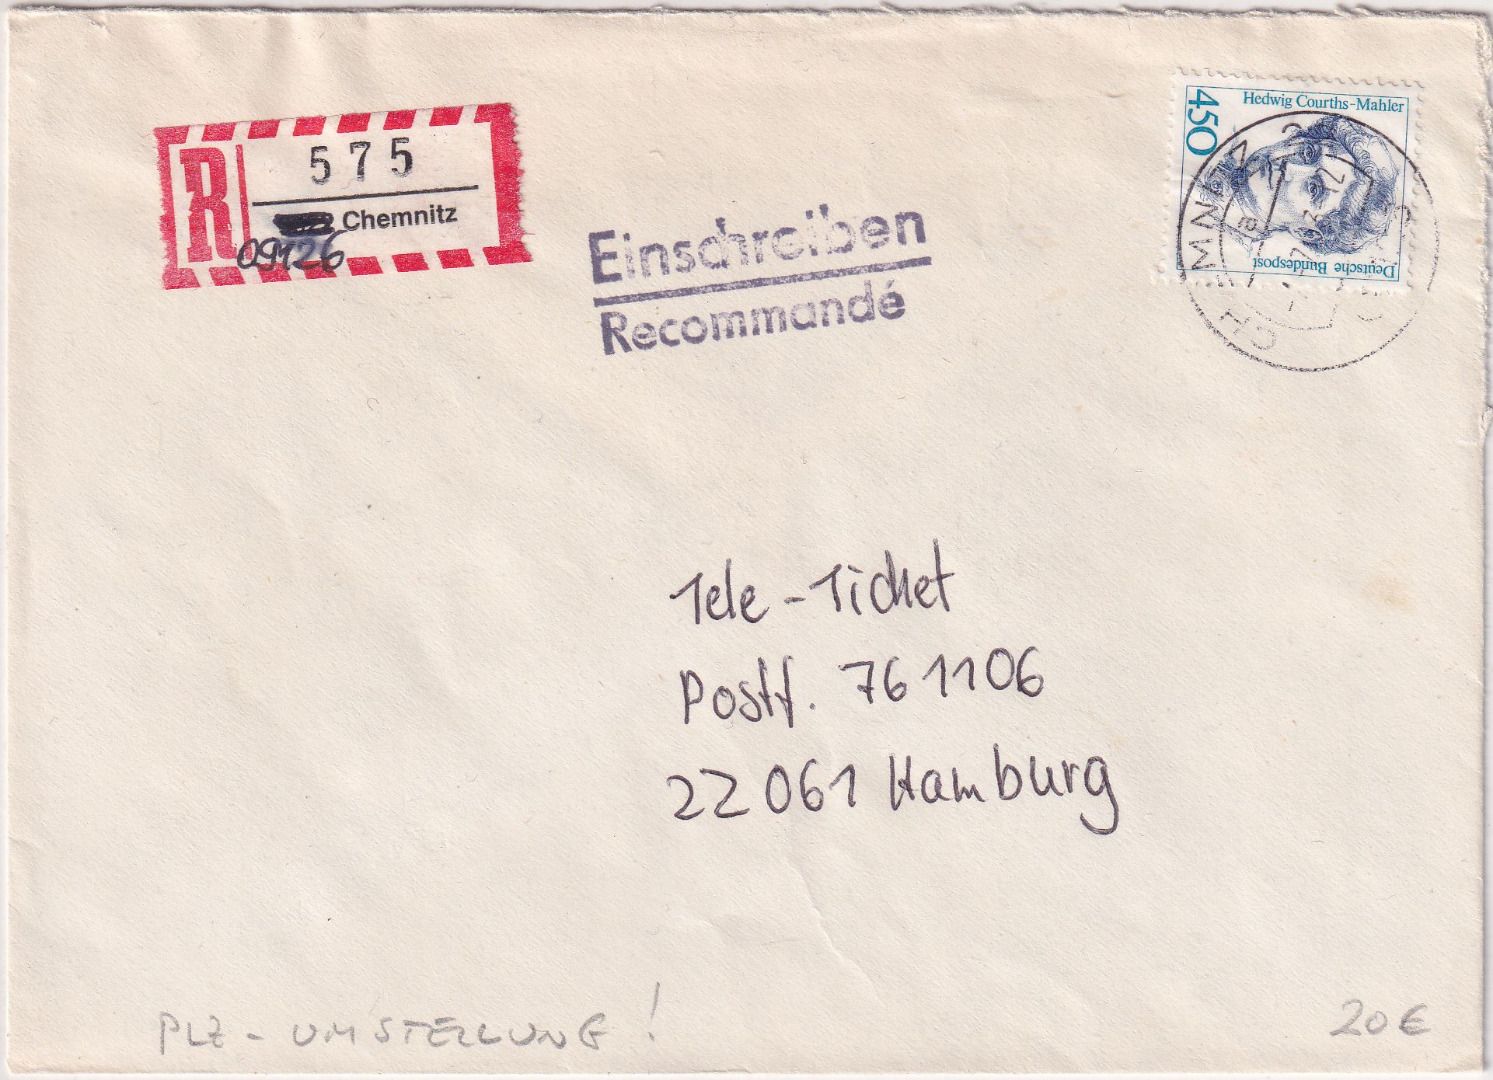 R
575
Chemnitz
09126
Einschreiben
Recommandé
Hedwig Courths-Mahler
450
Deutsche Bundespost
CHEMNITZ
Tele-Ticket
Postf. 761106
22061 Hamburg
PLZ-UMSTELLUNG!
20€